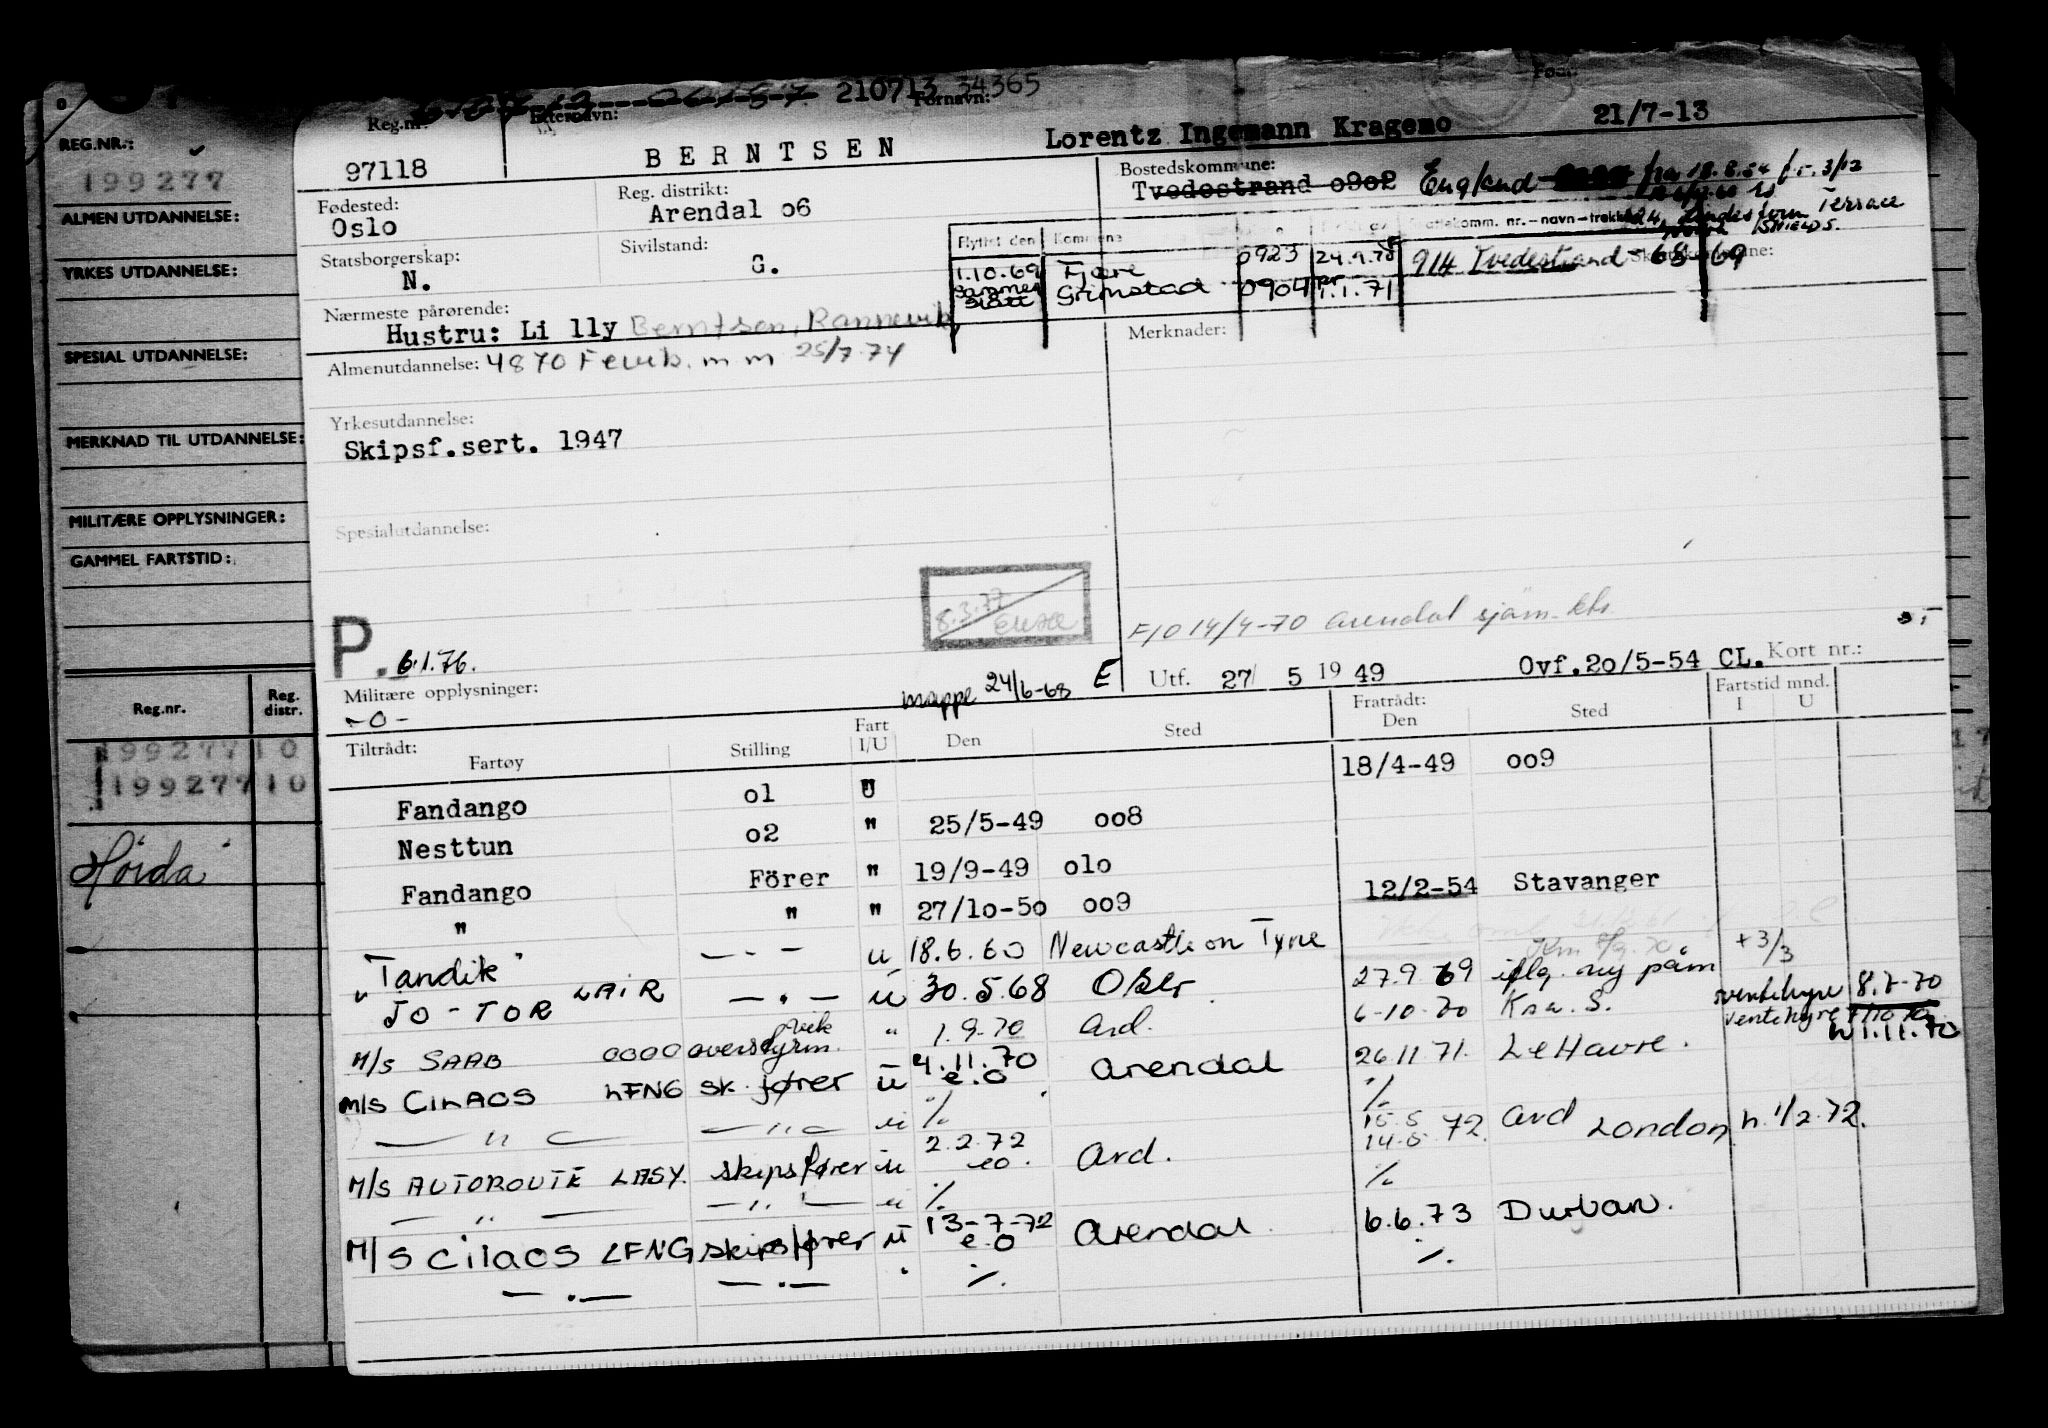 210713 34365
Reg.nr. Etternavn: Fornavn: Født:
97118 BERNTSEN Lorentz Ingemann Kragemo 21/7-13
Fødested: Oslo
Reg. distrikt: Arendal o6
Bostedskommune: Tvedestrand o9o2 England
24, Terrace
SHIELDS.
Statsborgerskap: N.
Sivilstand: G.
Flyttet den Kommune
1.10.69 Fjære 0923 24.9.70 914 Tvedestrand - 68 69
Grimstad 0904 1.1.71
Nærmeste pårørende:
Hustru: Li lly Berntsen, Rannevik,
Almenutdannelse: 4870 Fevik. m m 25/7.74
Merknader:
Yrkesutdannelse:
Skipsf.sert. 1947
Spesialutdannelse:
8.3.77
F/O 14/4-70 Arendal sjøm.ktr.
P. 6.1.76.
Militære opplysninger:
-0-
mappe 24/6-68 E
Utf. 27/ 5 19 49 Ovf.2o/5-54 CL. Kort nr.:
Tiltrådt: Fartøy Stilling Fart I/U Den Sted Fratrådt: Den Sted Fartstid mnd. I U
Fandango o1 U 18/4-49 oo9
Nesttun o2 " 25/5-49 oo8
Fandango Förer " 19/9-49 o1o
" " " 27/1o-5o oo9 12/2-54 Stavanger
"Tandik" - " - u 18.6.60 Newcastle on Tyne
JO-TOR LAIR - " - u 30.5.68 Oslo 27.9.69 iflg. ny påm +3/3
M/S SAAB 0000 overstyrm. vik " 1.9.70 Ard. 6-10-70 Kra. S. ventehyre 8.7-70
M/S CILAOS LFNG sk.fører u 4.11.70 e.o Arendal 26.11.71. Le Havre. ventehyre 1.11.70
- " - - " - u %. %
M/S AUTOROUTE LASY. skipsfører u 2.2.72 eo. Ard. 15.5 14.5.72. Ard London h. 1/2.72.
- " - - " - u %. %.
M/S CILAOS LFNG skipsfører u 13-7-72 e.o Arendal. 6.6.73 Durban.
- " - - " - " %. %.
REG.NR.:
199277
ALMEN UTDANNELSE:
YRKES UTDANNELSE:
SPESIAL UTDANNELSE:
MERKNAD TIL UTDANNELSE:
MILITÆRE OPPLYSNINGER:
GAMMEL FARTSTID:
Reg.nr. Reg. distr.
199277 10
199277 10
Hørda